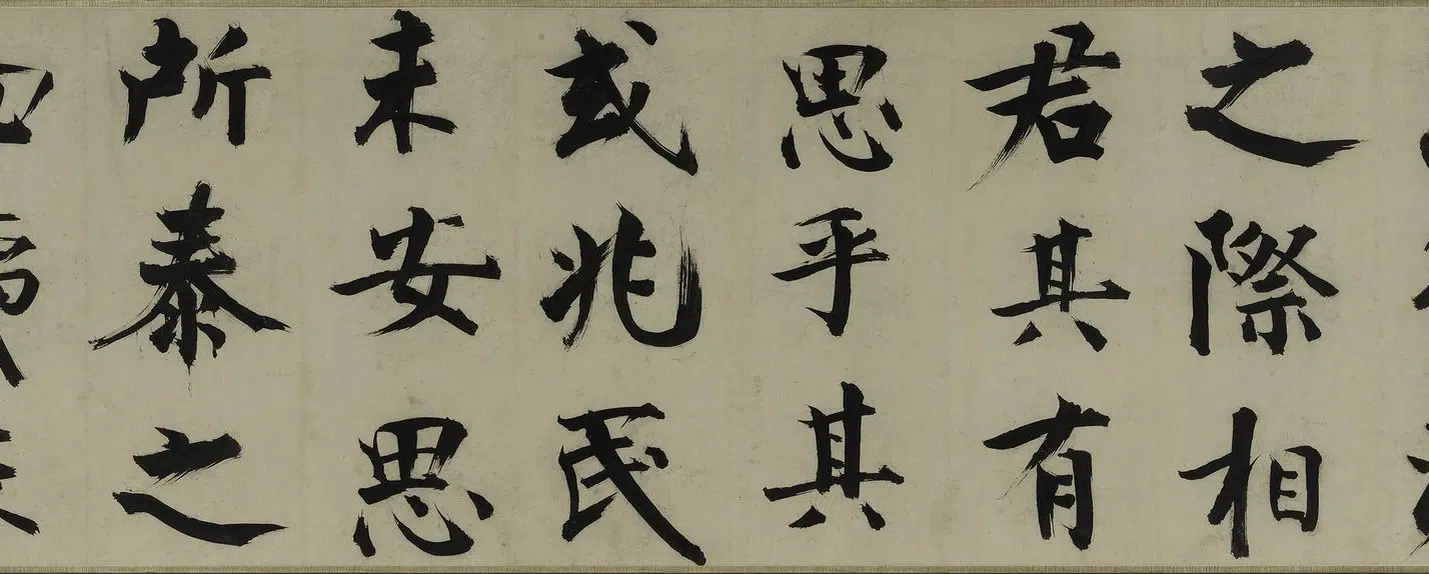 之際相
君其有
思乎其
或兆民
未安思
所泰之
四